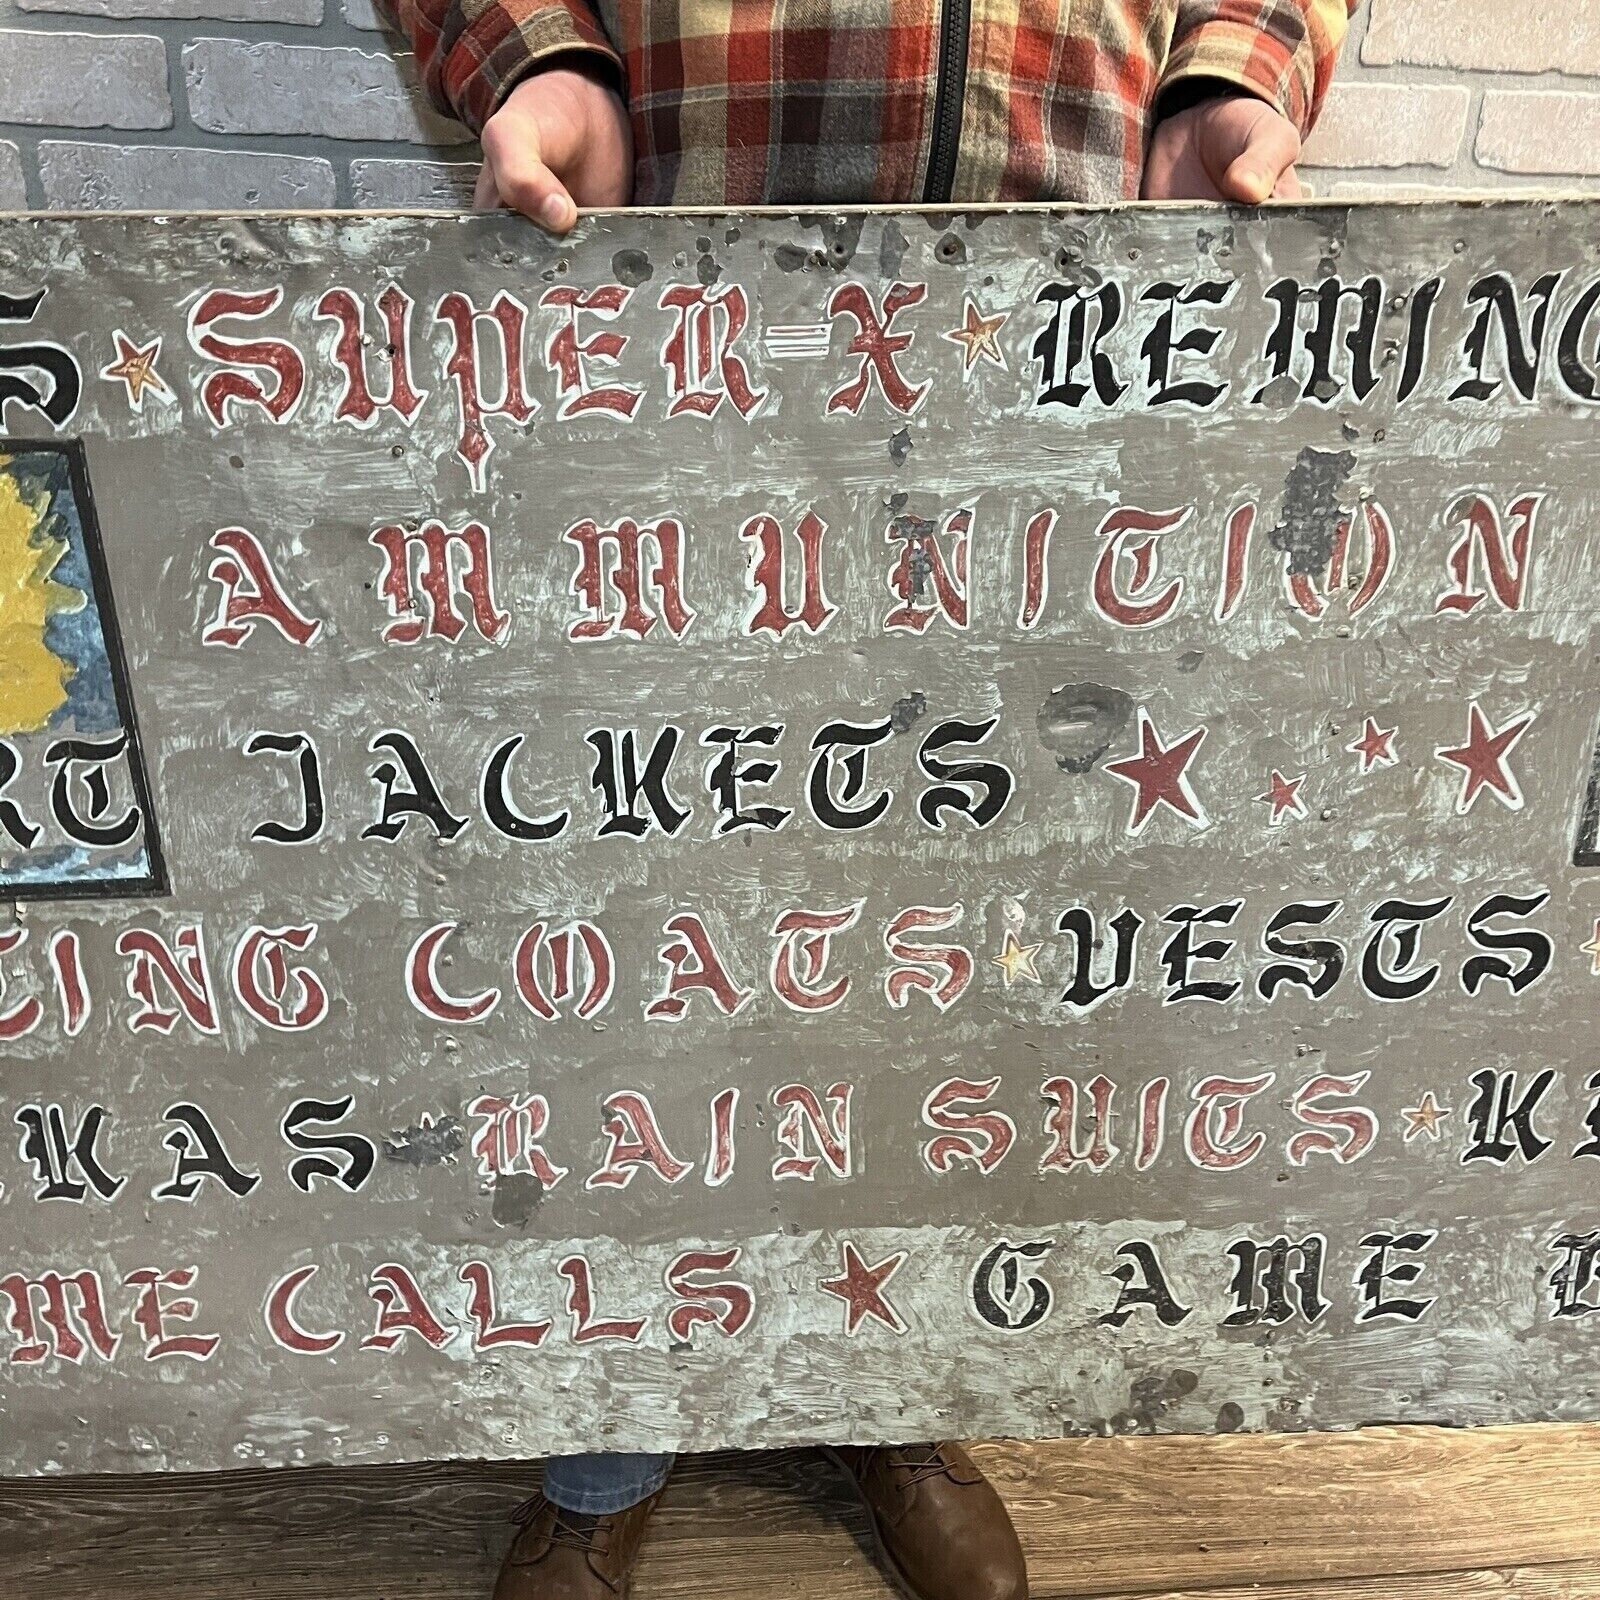 S ★ SUPER-X ★ REMING
AMMUNITION
RT JACKETS ★ ★ ★ ★
TING COATS ★ VESTS ★
KAS ★ RAIN SUITS ★ K
ME CALLS ★ GAME B